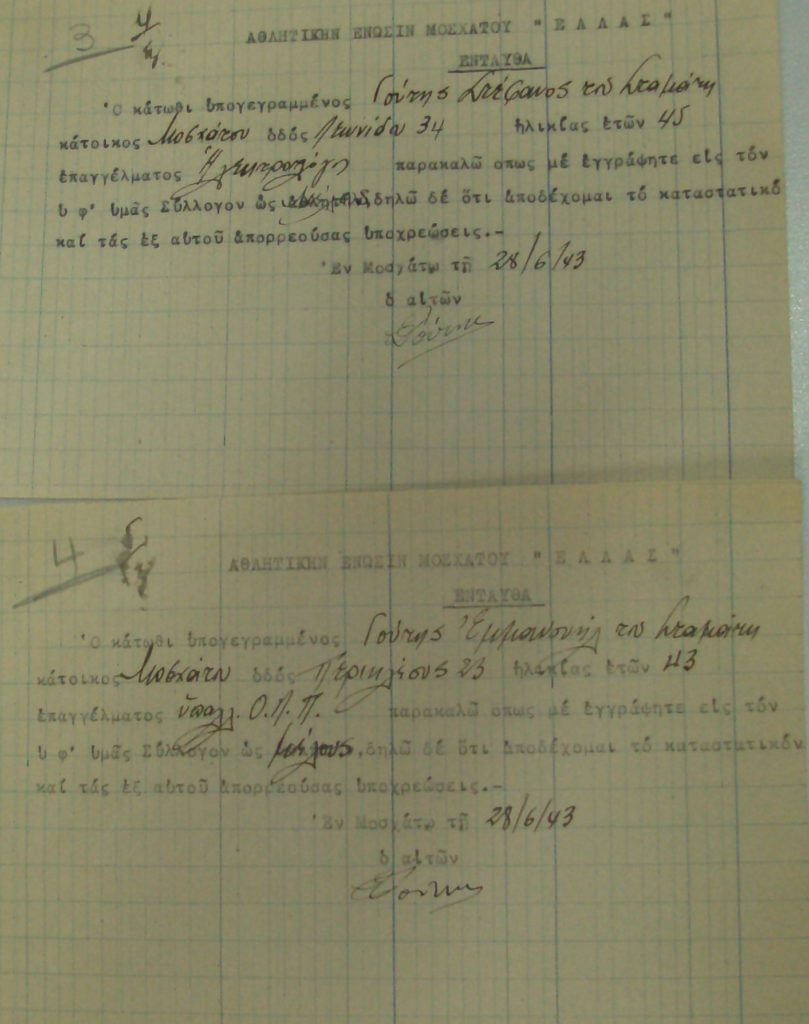 3
ΑΘΛΗΤΙΚΗΝ ΕΝΩΣΙΝ ΜΟΣΧΑΤΟΥ " Ε Λ Λ Α Σ "
ΕΝΤΑΥΘΑ
Ὁ κάτωθι ὑπογεγραμμένος Γούτης Στέφανος του Σταμάτη
κάτοικος Μοσχάτου ὁδός Λεωνίδου 34 ἡλικίας ἐτῶν 45
ἐπαγγέλματος Ἠλεκτρολόγος παρακαλῶ οπως μέ ἐγγράφητε είς τόν
ὑ φ' υμᾶς Σύλλογον ὡς δηλῶ δέ ὅτι ἀποδέχομαι τό καταστατικό
καί τάς ἐξ αὐτοῦ ἀπορρεούσας υποχρεώσεις.-
Ἐν Μοσχάτῳ τῇ 28/6/43
ὁ αἰτῶν
Γούτης
4
ΑΘΛΗΤΙΚΗΝ ΕΝΩΣΙΝ ΜΟΣΧΑΤΟΥ " Ε Λ Λ Α Σ "
ΕΝΤΑΥΘΑ
Ὁ κάτωθι ὑπογεγραμμένος Γούτης Ἐμμανουήλ του Σταμάτη
κάτοικος Μοσχάτου ὁδός Περικλέους 23 ἡλικίας ἐτῶν 43
ἐπαγγέλματος ὑπαλλ. Ο.Λ.Π. παρακαλῶ οπως μέ ἐγγράφητε είς τόν
ὑ φ' υμᾶς Σύλλογον ὡς μέλους, δηλῶ δέ ὅτι ἀποδέχομαι τό καταστατικόν
καί τάς ἐξ αὐτοῦ ἀπορρεούσας υποχρεώσεις.-
Ἐν Μοσχάτῳ τῇ 28/6/43
ὁ αἰτῶν
Γούτης